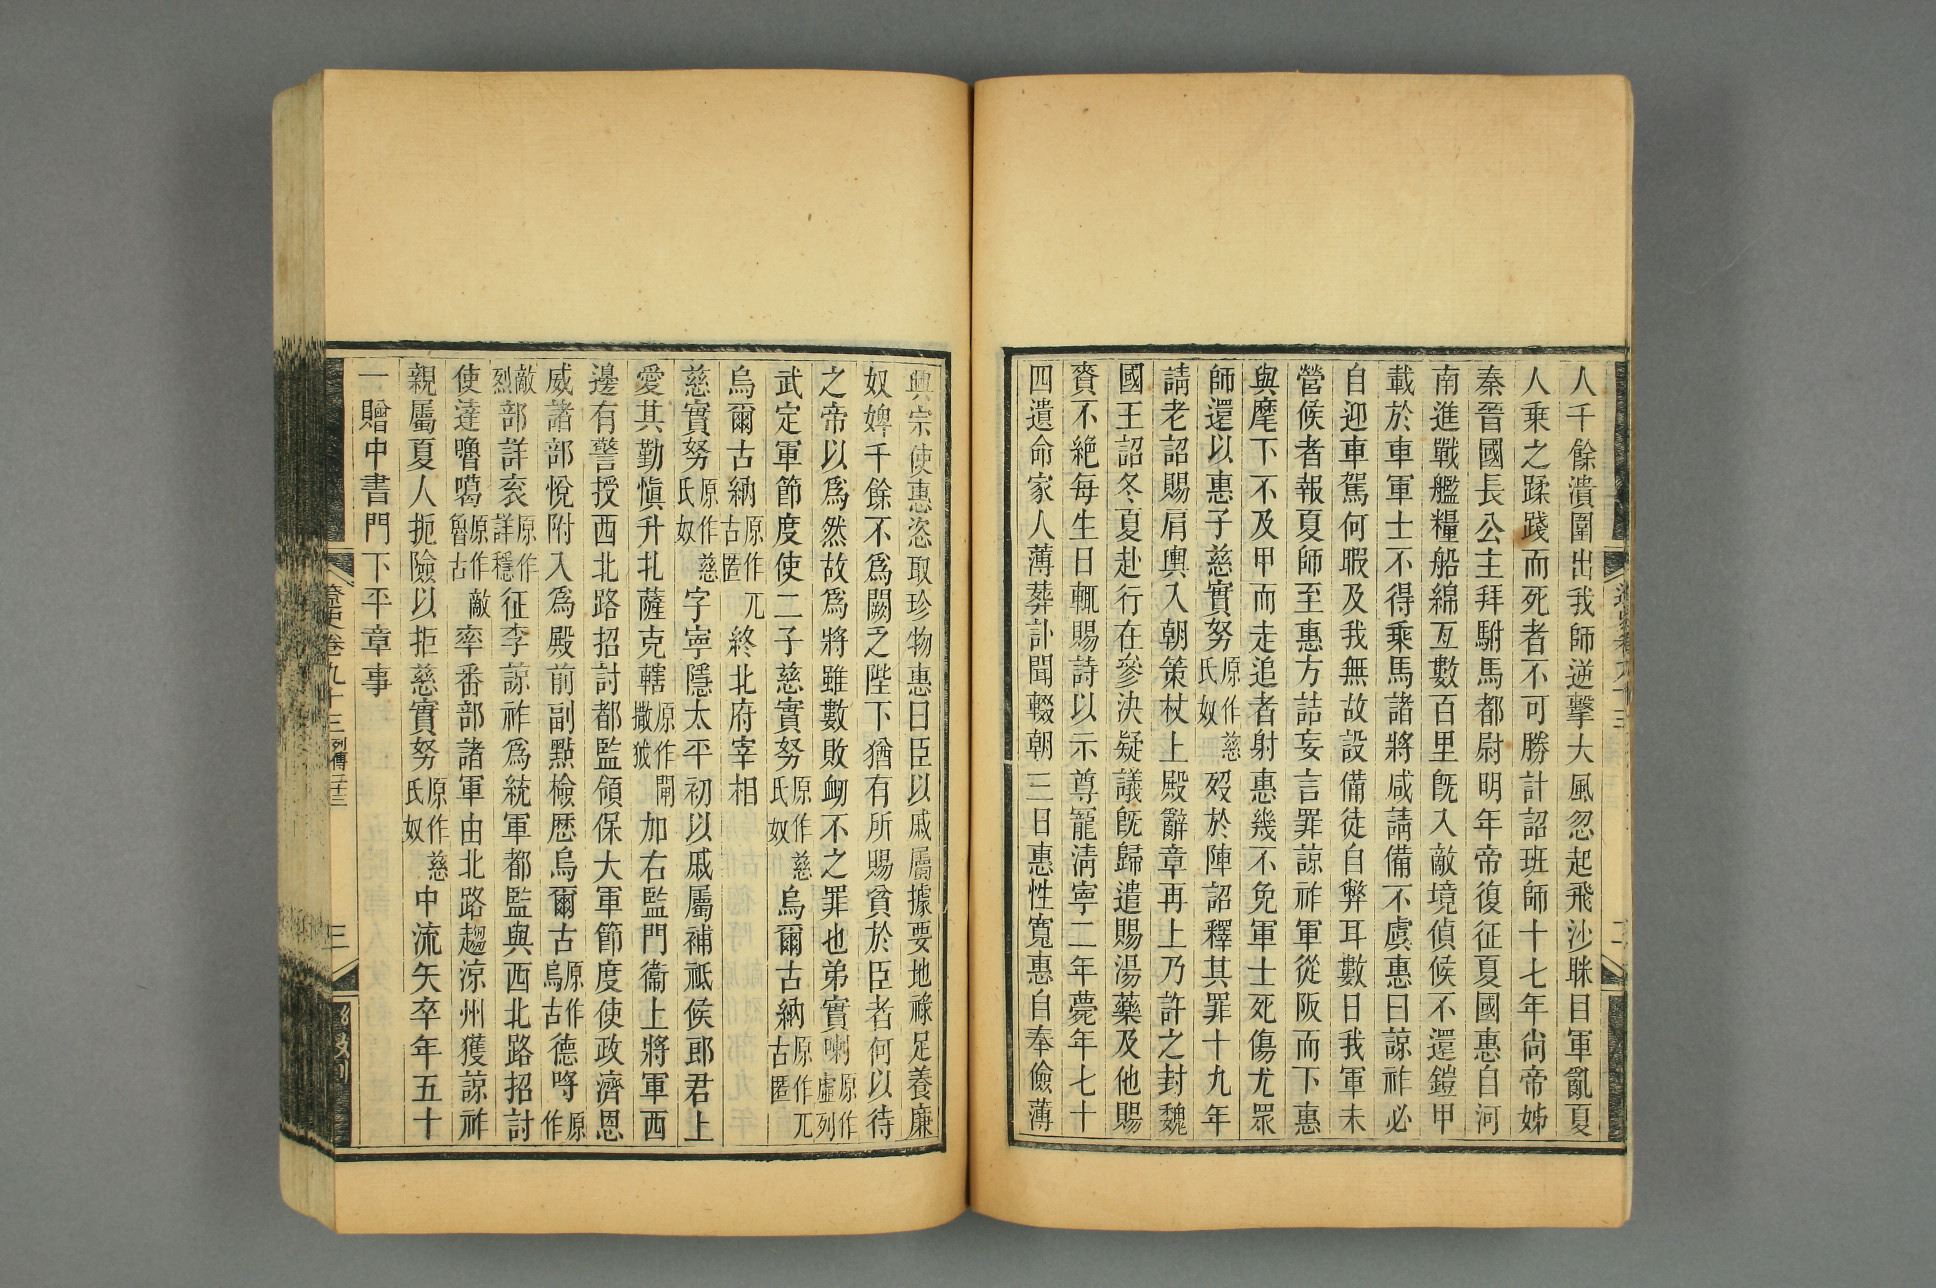 人千餘潰圍出我師逆擊大風忽起飛沙眯目軍亂夏
人乘之蹂踐而死者不可勝計詔班師十七年尙帝姊
秦晉國長公主拜駙馬都尉明年帝復征夏國惠自河
南進戰艦糧船綿亙數百里旣入敵境偵候不還鎧甲
載於車軍士不得乘馬諸將咸請備不虞惠曰諒祚必
自迎車駕何暇及我無故設備徒自弊耳數日我軍未
營候者報夏師至惠方詰妄言罪諒祚軍從阪而下惠
與麾下不及甲而走追者射惠幾不免軍士死傷尤眾
師還以惠子慈實努原作慈氏奴歿於陣詔釋其罪十九年
請老詔賜肩輿入朝策杖上殿辭章再上乃許之封魏
國王詔冬夏赴行在參決疑議旣歸遣賜湯藥及他賜
賚不絕每生日輒賜詩以示尊寵淸寧二年薨年七十
四遺命家人薄葬訃聞輟朝三日惠性寬惠自奉儉薄
興宗使惠恣取珍物惠曰臣以戚屬據要地祿足養廉
奴婢千餘不爲闕乏陛下猶有所賜貧於臣者何以待
之帝以爲然故爲將雖數敗衂不之罪也弟實喇原作虛列
武定軍節度使二子慈實努原作慈氏奴烏爾古納原作兀古匿
烏爾古納原作兀古匿終北府宰相
慈實努原作慈氏奴字寧隱太平初以戚屬補祗候郎君上
愛其勤愼升扎薩克轄原作閘撒狨加右監門衞上將軍西
邊有警授西北路招討都監領保大軍節度使政濟恩
威諸部悅附入爲殿前副點檢歷烏爾古原作烏古德哷原作
敵烈部詳袞原作詳穩征李諒祚爲統軍都監與西北路招討
使達嚕噶原作敵魯古率番部諸軍由北路趨涼州獲諒祚
親屬夏人扼險以拒慈實努原作慈氏奴中流矢卒年五十
一贈中書門下平章事
遼史卷九十三 列傳二十三
三